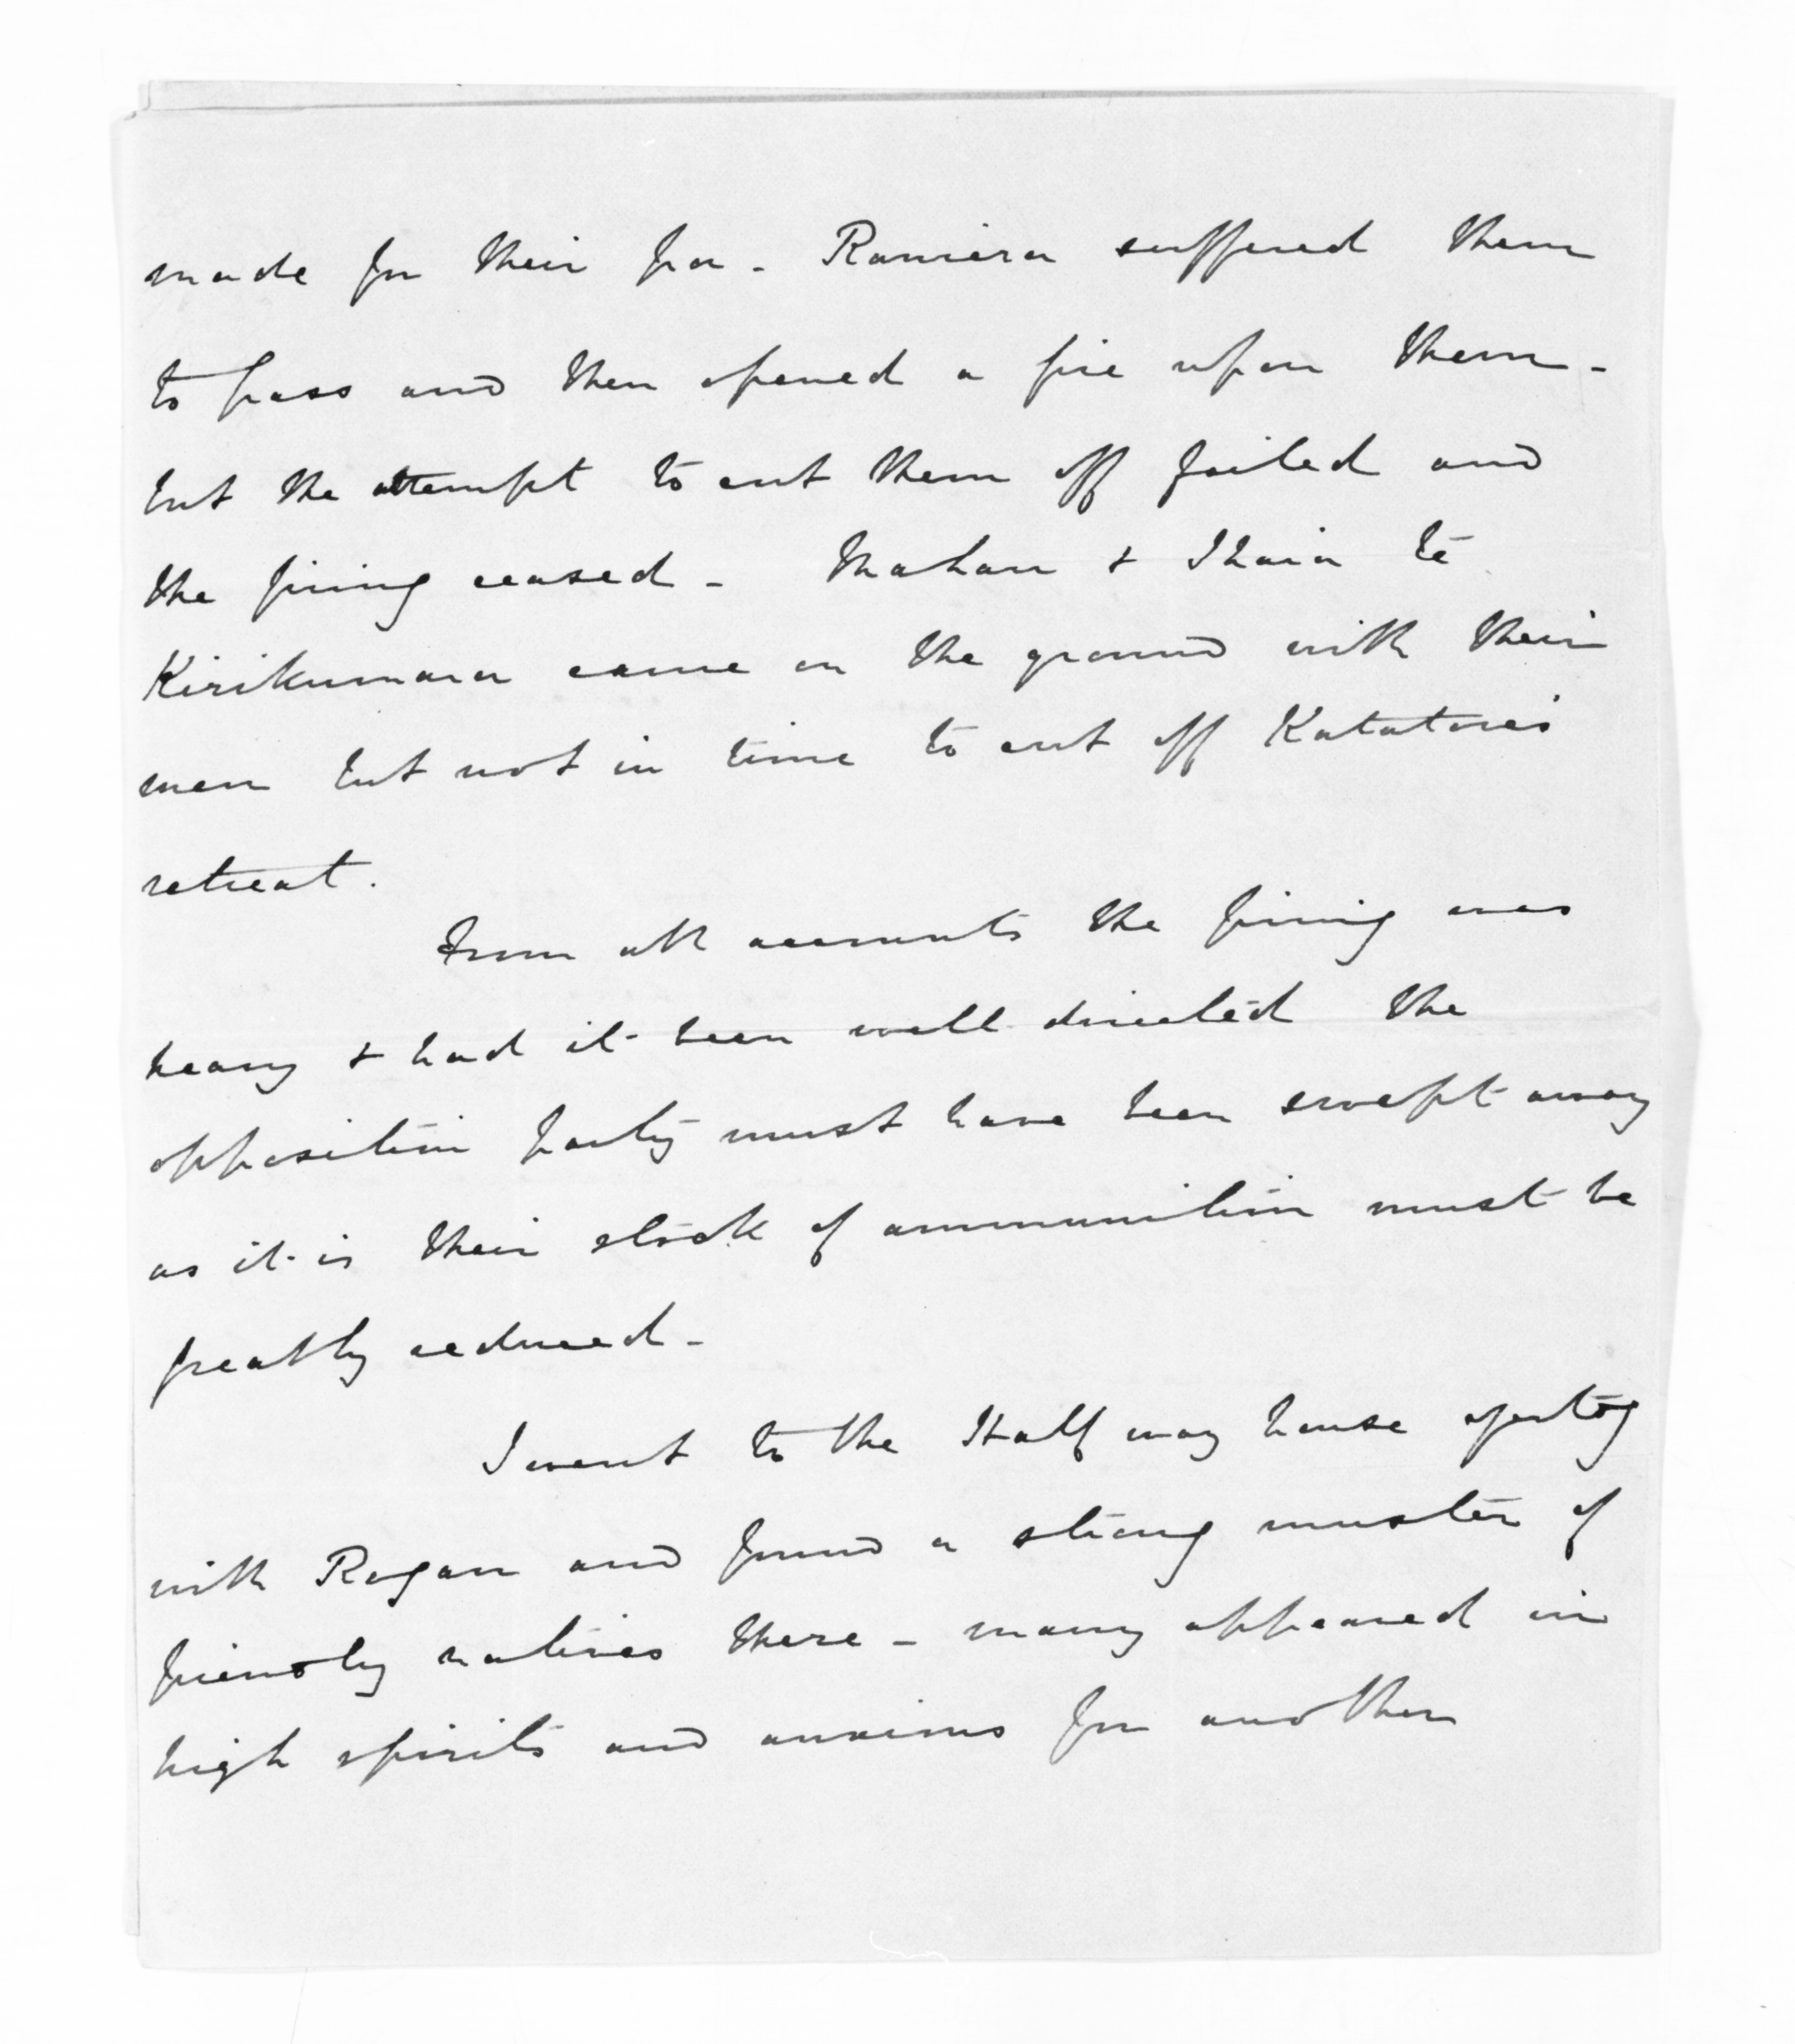 made for their pa - Ramiera suffered them
to pass and then opened a fire upon them -
but the attempt to cut them off failed and
the firing ceased - Mahau & Ihaia te
Kirikumara came on the ground with their
men but not in time to cut off Katatore's
retreat.
From all accounts the firing was
heavy & had it been well directed the
opposition party must have been swept away
as it is their stock of ammunition must be
greatly reduced -
I went to the Half way house yestdy
with Rogan and found a strong muster of
friendly natives there - many appeared in
high spirits and anxious for another